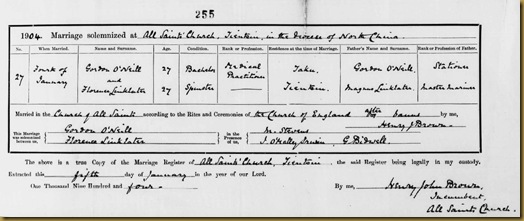 255
1904. Marriage solemnized at All Saints' Church, Tientsin, in the Diocese of North China.
No. When Married. Name and Surname. Age. Condition. Rank or Profession. Residence at the time of Marriage. Father's Name and Surname. Rank or Profession of Father.
27 Fourth of January Gordon O'Neill and Florence Linklater 27 27 Bachelor Spinster Medical Practitioner Taku Tientsin Gordon O'Neill Magnus Linklater Stationer Master Mariner
Married in the Church of All Saints according to the Rites and Ceremonies of the Church of England after banns by me,
Henry J Brown
This Marriage was solemnized between us, Gordon O'Neill Florence Linklater in the Presence of us M. Stevens G. Bidwell
The above is a true Copy of the Marriage Register of All Saints' Church, Tientsin, the said Register being legally in my custody.
Extracted this fifth day of January in the year of our Lord.
One Thousand Nine Hundred and four. By me, Henry John Brown,
Incumbent,
All Saints Church.